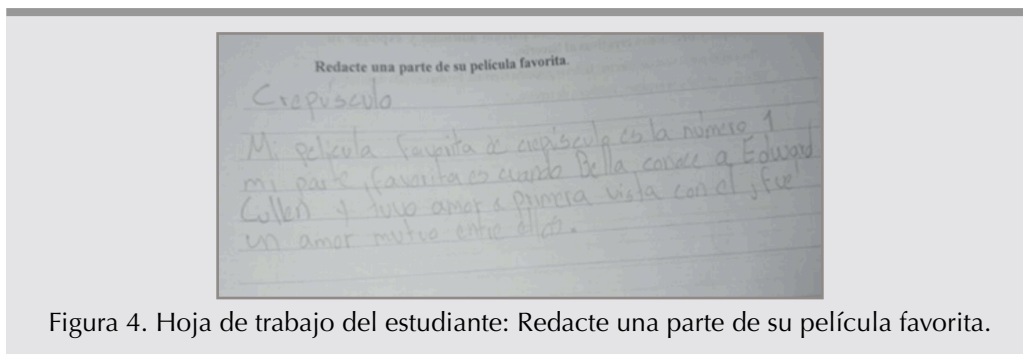 Redacte una parte de su película favorita.
Crepúsculo
Mi película favorita de crepúsculo es la número 1
mi parte favorita es cuando Bella conoce a Edward
Cullen y tuvo amor a primera vista con el, fue
un amor mutuo entre ellos.
Figura 4. Hoja de trabajo del estudiante: Redacte una parte de su película favorita.